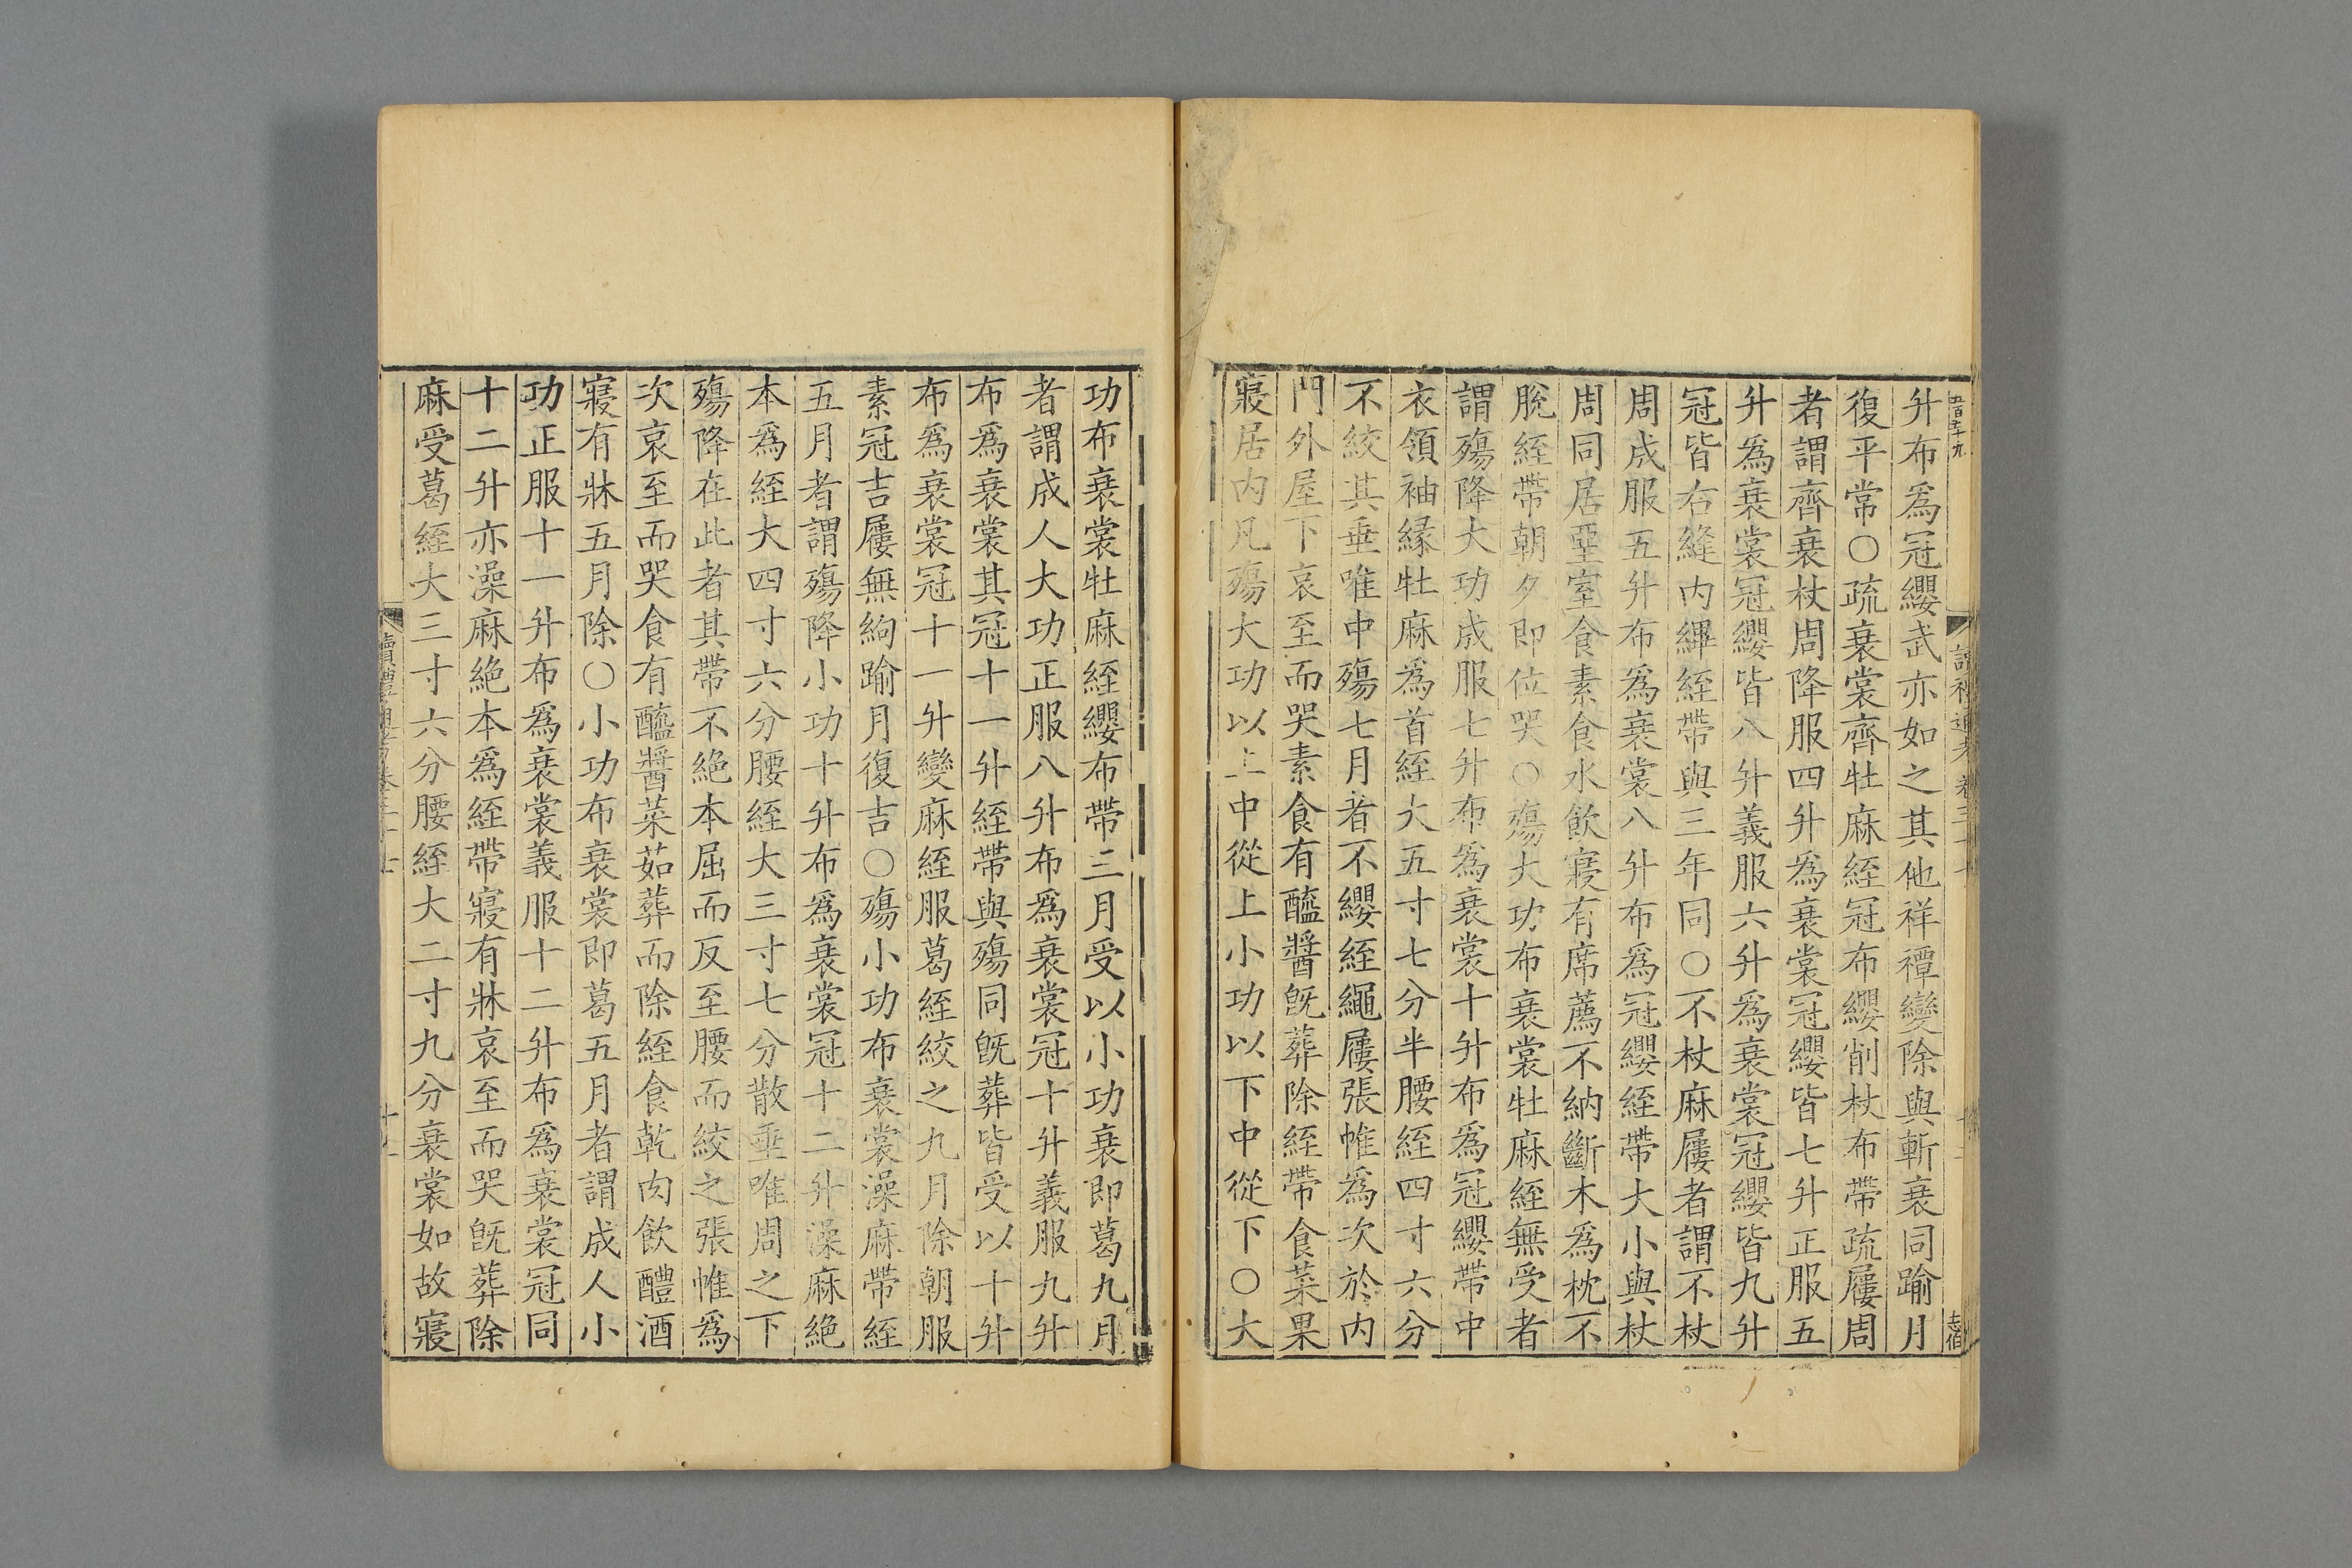 五百五十九
讀禮通考卷三十七
志伯
升布爲冠纓武亦如之其他祥禫變除與斬衰同踰月
復平常○疏衰裳齊牡麻絰冠布纓削杖布帶疏屨周
者謂齊衰杖周降服四升爲衰裳冠纓皆七升正服五
升爲衰裳冠纓皆八升義服六升爲衰裳冠纓皆九升
冠皆右縫内縪絰帶與三年同○不杖麻屨者謂不杖
周成服五升布爲衰裳八升布爲冠纓絰帶大小與杖
周同居堊室食素食水飲寢有席薦不納斷木爲枕不
脫絰帶朝夕即位哭○殤大功布衰裳牡麻絰無受者
謂殤降大功成服七升布爲衰裳十升布爲冠纓帶中
衣領袖緣牡麻爲首絰大五寸七分半腰絰四寸六分
不絞其垂唯中殤七月者不纓絰繩屨張帷爲次於内
門外屋下哀至而哭素食有醯醬旣葬除絰帶食菜果
寢居内凡殤大功以上中從上小功以下中從下○大
功布衰裳牡麻絰纓布帶三月受以小功衰即葛九月
者謂成人大功正服八升布爲衰裳冠十升義服九升
布爲衰裳其冠十一升絰帶與殤同旣葬皆受以十升
布爲衰裳冠十一升變麻絰服葛絰絞之九月除朝服
素冠吉屨無絇踰月復吉○殤小功布衰裳澡麻帶絰
五月者謂殤降小功十升布爲衰裳冠十二升澡麻絕
本爲絰大四寸六分腰絰大三寸七分散垂唯周之下
殤降在此者其帶不絕本屈而反至腰而絞之張帷爲
次哀至而哭食有醯醬菜茹葬而除絰食乾肉飲醴酒
寢有牀五月除○小功布衰裳即葛五月者謂成人小
功正服十一升布爲衰裳義服十二升布爲衰裳冠同
十二升亦澡麻絕本爲絰帶寢有牀哀至而哭旣葬除
麻受葛絰大三寸六分腰絰大二寸九分衰裳如故寢
讀禮通考卷三十七